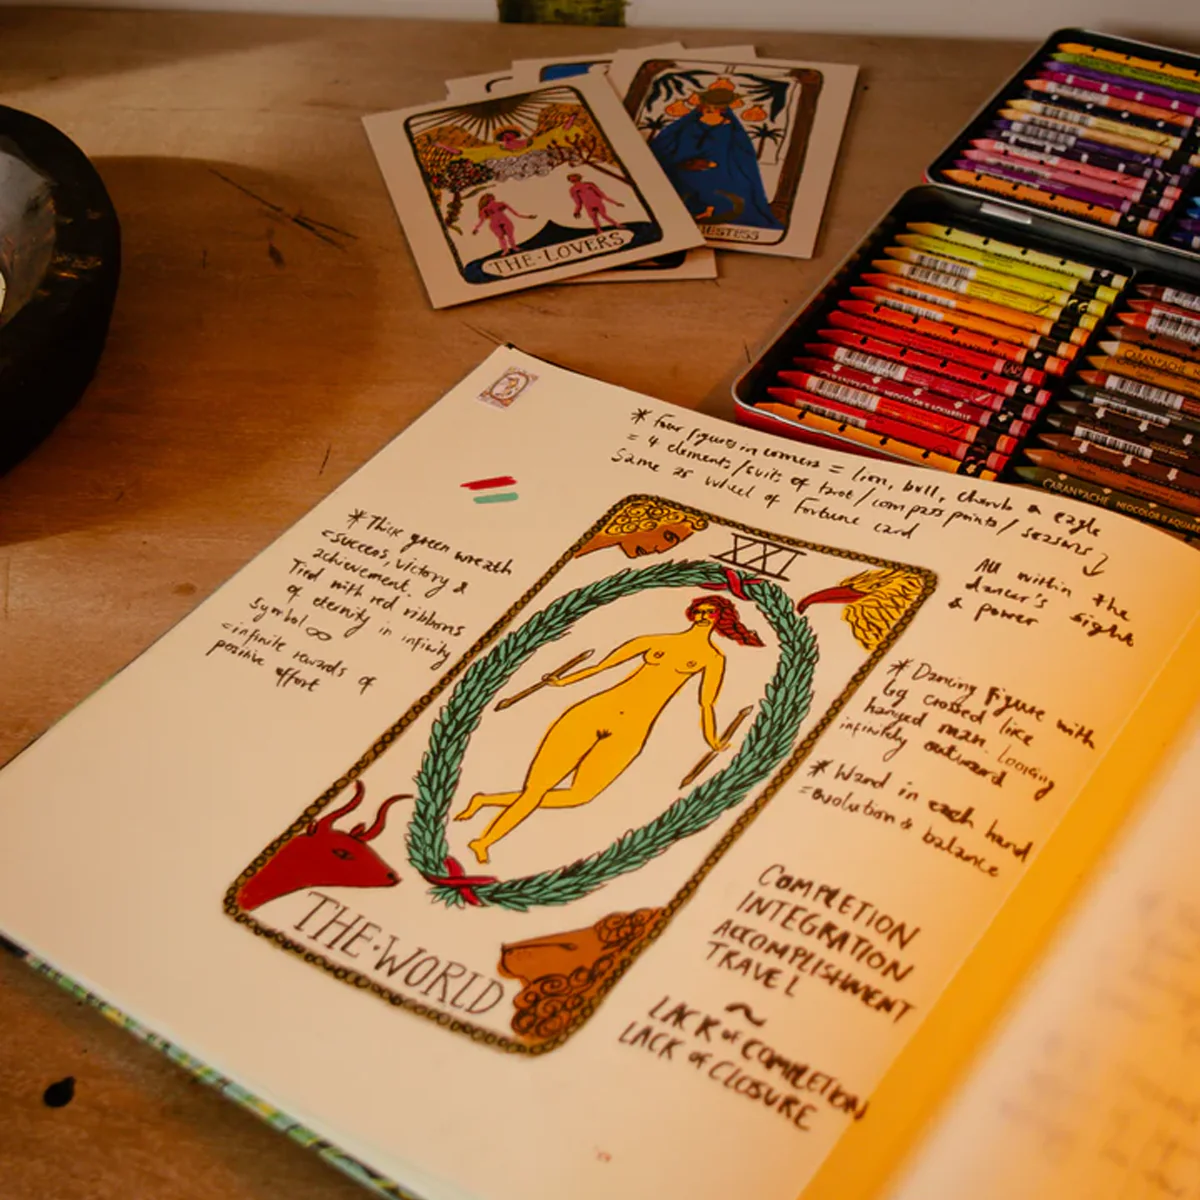 THE·LOVERS
II
ESTESS
CARAN D'ACHE
CARAN D'ACHE NEOCOLOR II AQUARELLE
* Four figures in corners = lion, bull, cherub & eagle
= 4 elements/suits of tarot/compass points/seasons
Same as wheel of Fortune card
All within the
dancer's sight
& power
* Thick green wreath
=success, victory &
achievement.
Tied with red ribbons
of eternity in infinity
symbol ∞
=infinite rewards of
positive effort
XXI
THE·WORLD
* Dancing figure with
leg crossed like
hanged man. Looking
infinitely outward
* Wand in each hand
=evolution & balance
COMPLETION
INTEGRATION
ACCOMPLISHMENT
TRAVEL
~
LACK of COMPLETION
LACK of CLOSURE